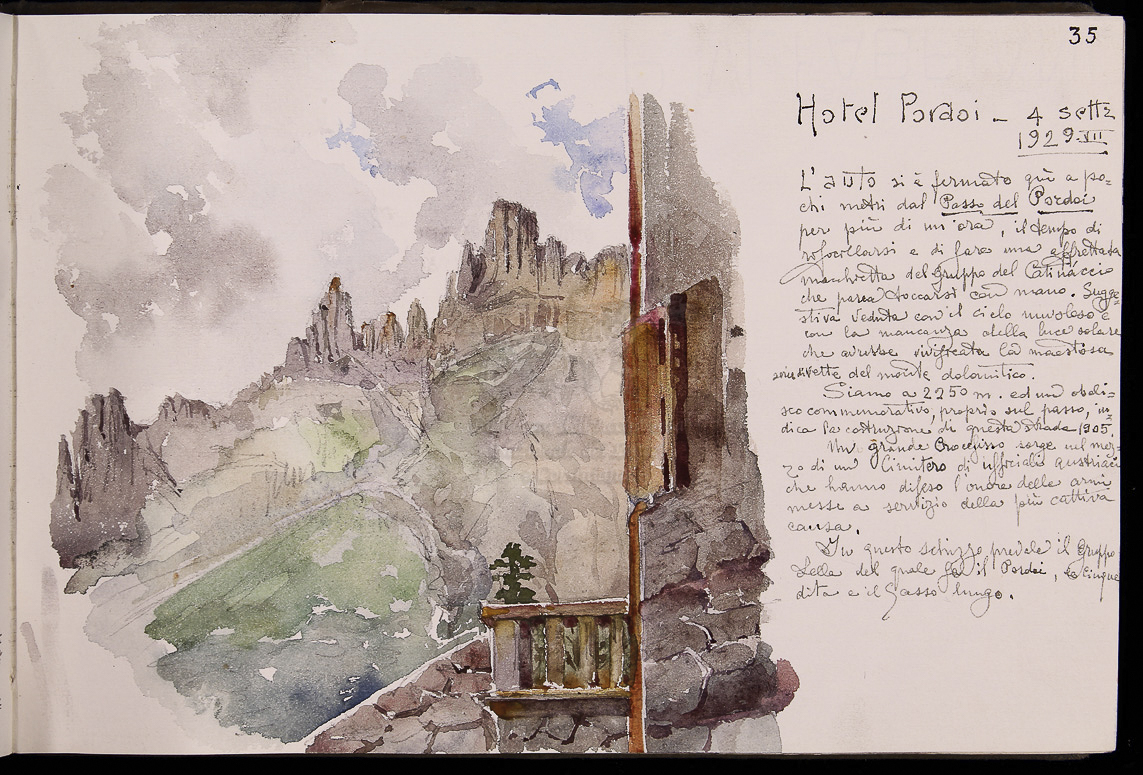 35
Hotel Pordoi - 4 sett.
1929.VII
L'auto si è fermato quì a po-
chi metri dal Passo del Pordoi
per più di un'ora, il tempo di
rifocillarsi e di fare una affrettata
macchietta del gruppo del Catinaccio
che parea toccarsi con mano. Sugge-
stiva veduta con il cielo nuvoloso e
con la mancanza della luce solare
che avrebbe vivificata la maestosa
vette del monte dolomitico.
Siamo a 2250 m. ed un obeli-
sco commemorativo, proprio sul passo, in-
dica la costruzione di questa strada 1905.
Un grande Crocefisso sorge nel mez-
zo di un Cimitero di ufficiali austriaci
che hanno difeso l'onore delle armi
messe a servizio della più cattiva
causa.
In questo schizzo prevale il Gruppo
Sella del quale fa il Pordoi, le Cinque
dita e il Sasso lungo.